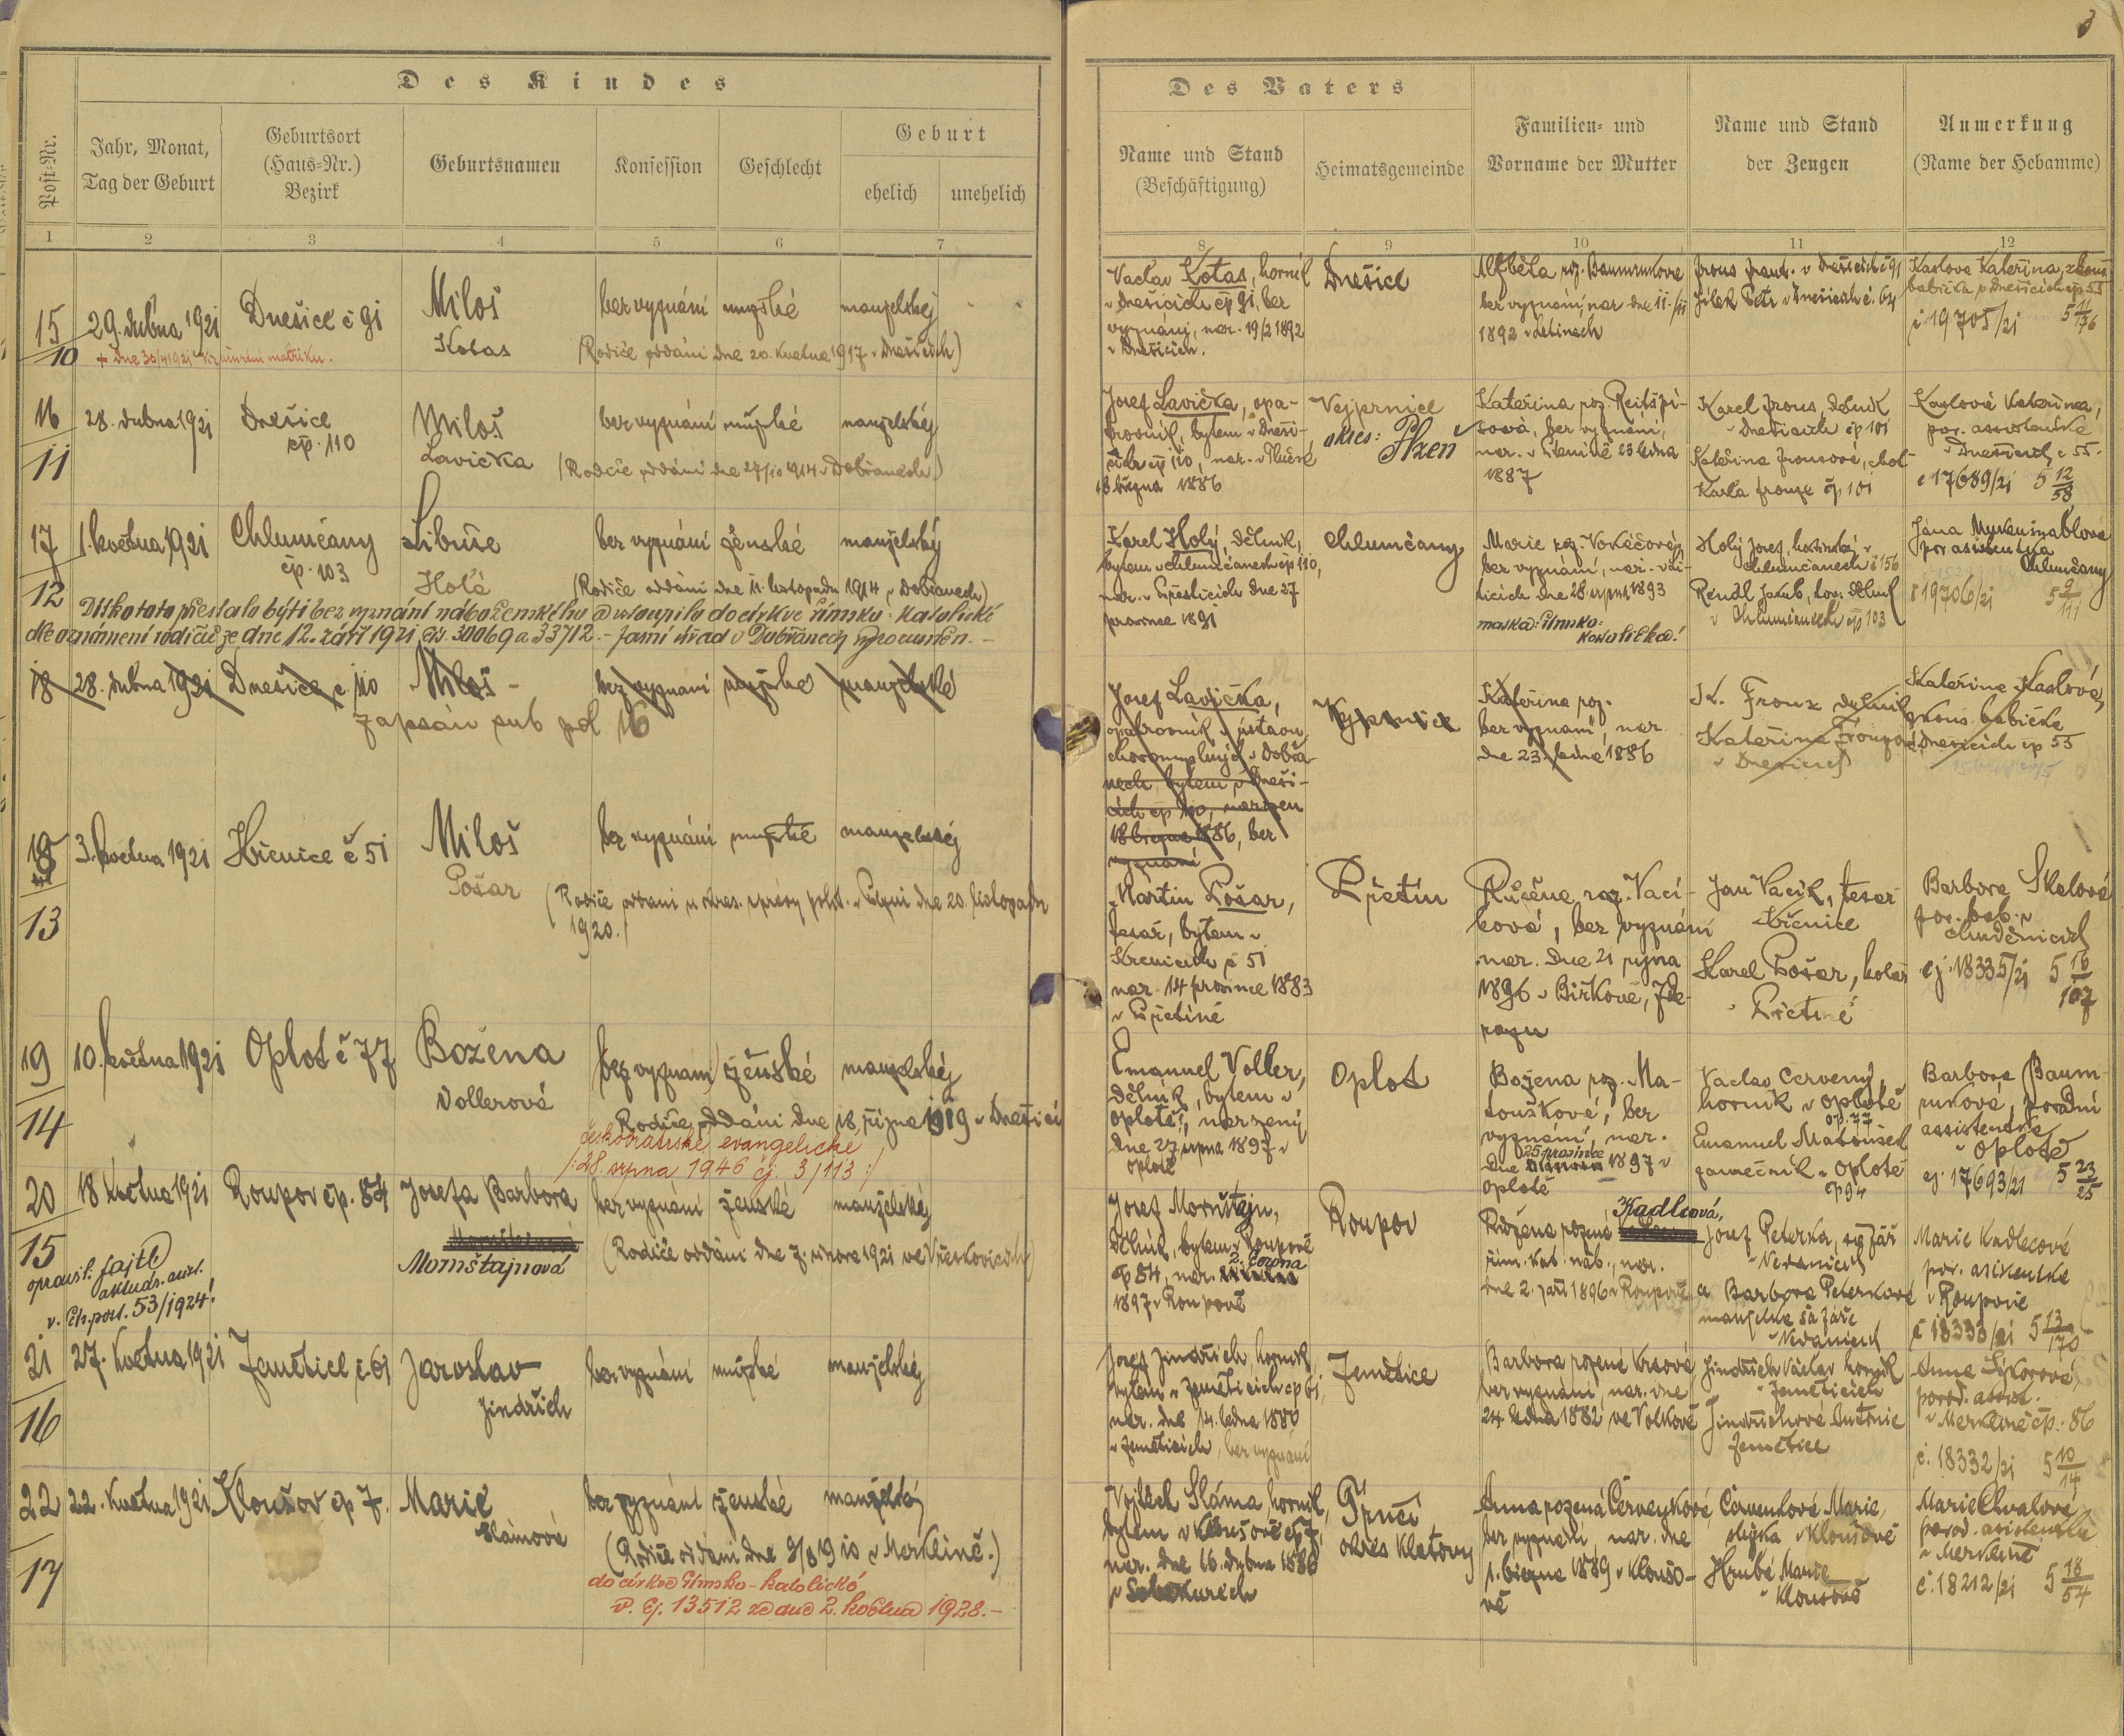 Des Kindes
Post-Nr.
Jahr, Monat,
Tag der Geburt
Geburtsort
(Haus-Nr.)
Bezirk
Geburtsnamen
Konfession
Geschlecht
Geburt
ehelich
unehelich
1 2 3 4 5 6 7
15 29. dubna 1921 Dnešice č 91 Miloš bez vyznání mužské manželský
10 Kotas (Rodiče oddáni dne 20. května 1917 v Dnešicích)
+ dne 30/4 1921
16 28. dubna 1921 Dnešice Miloš bez vyznání mužské manželský
čp. 110
11 Lavička (Rodiče oddáni dne 27/10 1914 v Dobřanech)
17 1. května 1921 Chlumčany Libuše bez vyznání ženské manželský
čp. 103
12 Holá (Rodiče oddáni dne 11. listopadu 1914 v Dobřanech)
Dítko toto přestalo býti bez vyznání náboženského a vstoupilo do církve římsko-katolické
dle oznámení rodičů ze dne 12. září 1921 čj. 30069 a 33712.- Farní úřad v Dobřanech vyrozuměn.-
18 28. dubna 1921 Dnešice č. 110 Miloš - bez vyznání mužské manželské
zapsán sub pol 16
18 3. května 1921 Křenice č 51 Miloš bez vyznání mužské manželský
Pošar (Rodiče oddáni u okres. správy polit. v Plzni dne 20. listopadu
13 1920.)
19 10. května 1921 Oplot č 77 Božena bez vyznání ženské manželský
Vollerová
14 Rodiče oddáni dne 18. října 1919 v Dnešicích
českobratrské evangelické
/: 28. srpna 1946 čj. 3/113 :/
20 18 května 1921 Roupov čp. 84 Josefa Barbora bez vyznání ženské manželský
15 Mornštajnová (Rodiče oddáni dne 7. února 1921 ve Vřeskovicích)
opravil: Fajtl
v. čís. post. 53/1924!
21 27. května 1921 Zemětice č. 61 Jaroslav bez vyznání mužské manželský
16 Jindřich
22 22. května 1921 Kloušov čp 7. Marie bez vyznání ženské manželský
Slámová
17 (Rodiče oddáni dne 9/8 1910 v Merklíně.)
do církve římsko-katolické
v. čj. 13512 ze dne 2. května 1928.-
Des Vaters
Name und Stand
(Beschäftigung)
Heimatsgemeinde
Familien- und
Vorname der Mutter
Name und Stand
der Zeugen
Anmerkung
(Name der Hebamme)
8 9 10 11 12
Václav Kotas, horník
v Dnešicích čp 91, bez
vyznání, nar. 19/2 1892
v Dnešicích.
Dnešice
Alžběta roz.
bez vyznání, nar dne
1892
v Dnešicích č 91
Jílek Petr v Dnešicích č. 64
Kaslová Kateřina, zkouš.
babička v Dnešicích čp 55
č 19705/21
Josef Lavička, opa-
trovník, bytem v Dneši-
cích čp 110, nar.
března 1886
Vejprnice
okres: Plzeň
Kateřina roz.
bez vyznání,
nar. 23 ledna
1887
Karel Frous, dělník
v Dnešicích čp 101
Kateřina Frousová, choť
Karla Frouze čp 101
Kaslová Kateřina,
por. assistentka
v Dnešicích č 55.
č 17689/21 5 12/58
Karel Holý, dělník,
bytem v Chlumčanech čp 110,
nar. v Přešticích dne 27
prosince 1891
Chlumčany
Marie roz.
bez vyznání, nar.
dne 28. srpna 1893
matka: římsko-
katolička!
Holý Josef, hostinský v
Chlumčanech č 156
Rendl Jakub, kov. dělník
v Chlumčanech čp 103
Jana
por asistentka
Chlumčany
č 19706/21 5 9/111
Josef Lavička,
opatrovník v ústavu
choromyslných v Dobřa-
nech, bytem v Dneši-
cích čp 110, narozen
18 března 1886, bez
vyznání
Vejprnice
Kateřina roz.
bez vyznání, nar
dne 23. ledna 1886
K. Frouz dělník
Kateřina Frouzová
v Dnešicích
Kateřina Kaslová,
zkouš. babička
v Dnešicích čp 55
Martin Pošar,
tesař, bytem v
Křenicích č 51
nar. 14 prosince 1883
v Příchově
Růžena roz. Vací-
ková, bez vyznání
nar. dne 21 října
1896 v Birkově,
Jan Vacík, tesař
Křenice
Karel Pošar, kolář
Barbora Skalová
por. bab. v
čj. 18335/21 5 16/107
Emanuel Voller,
dělník, bytem v
Oplotě, narzený
dne 27 srpna 1897 v
Oplotě
Oplot
Božena roz. Ma-
toušková, bez
vyznání, nar.
25 prosince
dne 1897 v
Oplotě
Václav Červený,
horník v Oplotě
čp. 77
Emanuel Matoušek
zámečník v Oplotě
čp 94
Barbora Baum-
ruková, porodní
assistentka
v Oplotě
čj. 17693/21 5 23/25
Josef Mornštajn,
dělník, bytem v Roupově
čp 84, nar. 2. června
1897 v Roupově
Roupov
Růžena rozená Kadlecová,
řím. kat. náb., nar.
dne 2. září 1896 v Roupově
Josef Peterka, sázeč
v Nedanicích
a Barbora Peterková
manželka sázeče
v Nedanicích
Marie Kadlecová
por. asistentka
v Roupově
č 18333/21 5 13/170
Josef Jindřich horník
bytem v Zeměticích čp 61,
nar. dne 14. ledna 1880
v Zeměticích, bez vyznání
Zemětice
Barbora rozená Krsová
bez vyznání, nar. dne
24. ledna 1882
Jindřich Václav horník
v Zeměticích
Jindřichová Antonie
Zemětice
Anna Sýkorová,
porod. assist.
v Merklíně čp. 86
č. 18332/21 5 10/14
Vojtěch Sláma horník,
bytem v Kloušově čp 7,
nar. dne 16. dubna 1886
v Soběkurech
okres Klatovy
Anna rozená Červenková
bez vyznání, nar. dne
1. března 1889 v Kloušo-
vě
Červenková Marie,
v Kloušově
Hrubá Marie
v Kloušově
Marie Chvalová
porod. asistentka
v Merklíně
č. 18212/21 5 18/54